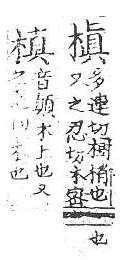 槇多連切樹梢也
又之忍切木密也
槙音顛木上也又
也